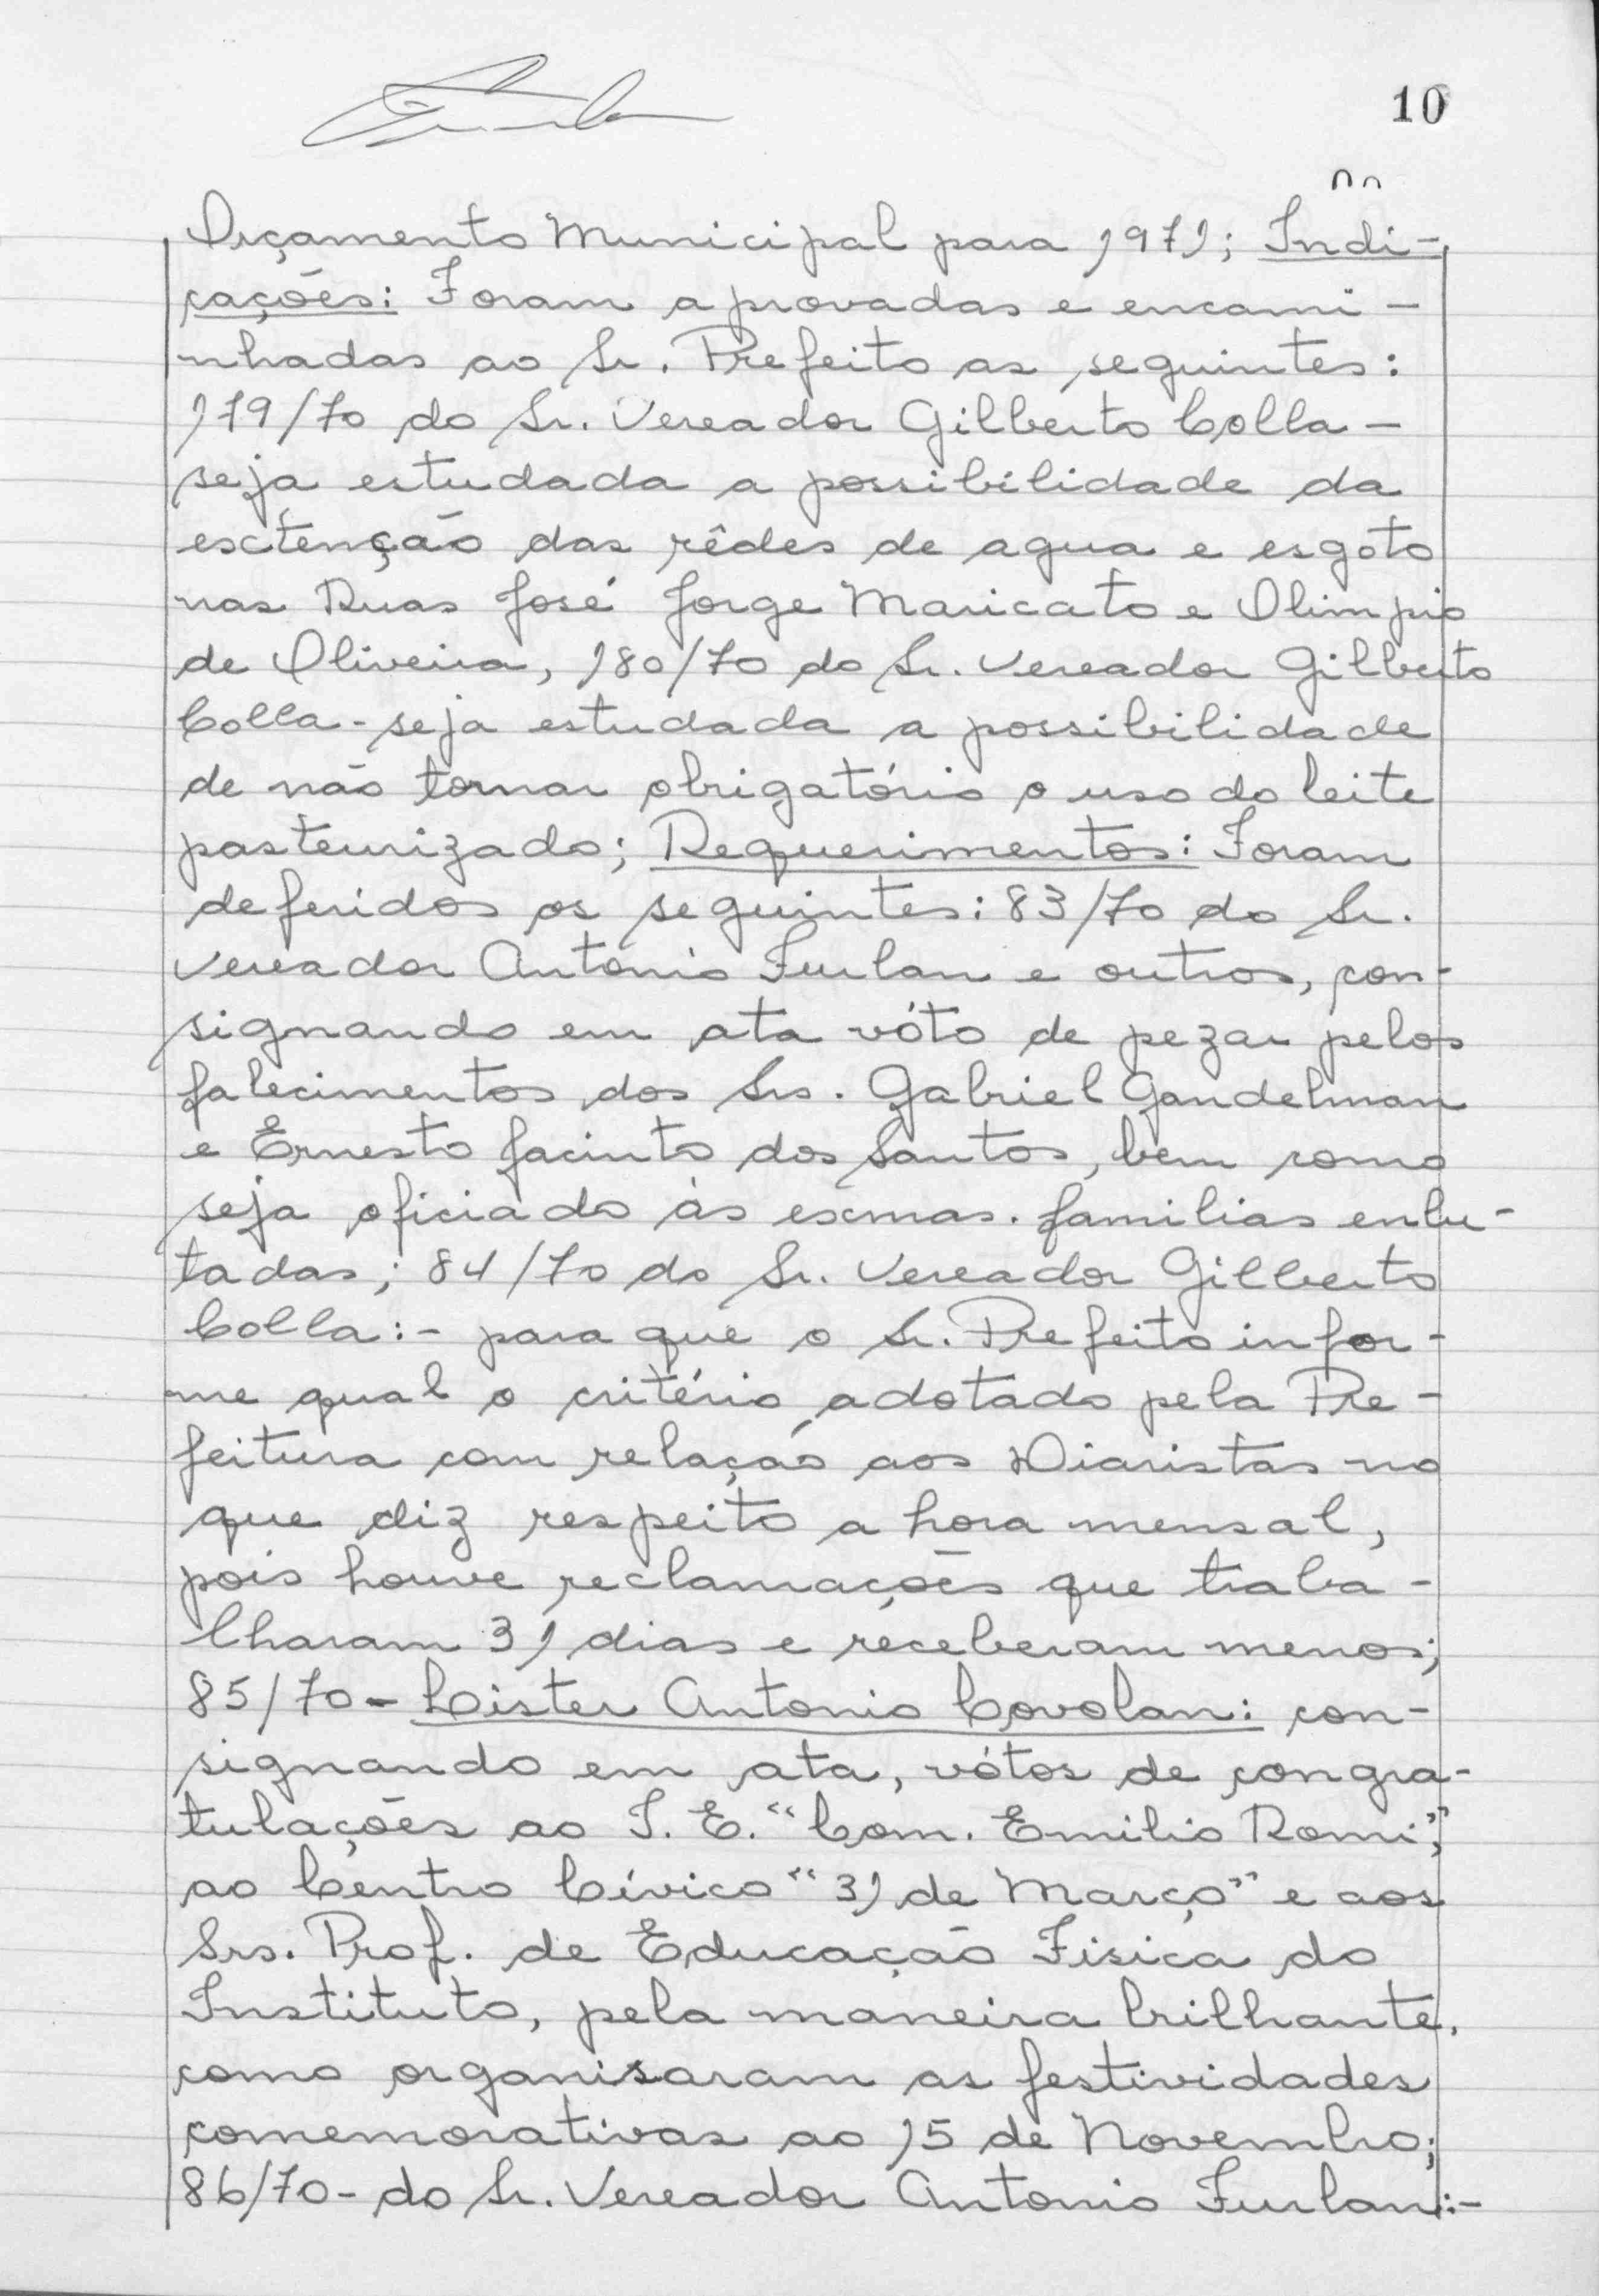 10
Orçamento Municipal para 1971; Indi-
cações: Foram aprovadas e encami-
nhadas ao Sr. Prefeito as seguintes:
179/70 do Sr. Vereador Gilberto Colla -
seja estudada a possibilidade da
esctenção das rêdes de agua e esgôto
nas Ruas José Jorge Maricato e Olimpio
de Oliveira, 180/70 do Sr. Vereador Gilberto
Colla - seja estudada a possibilidade
de não tornar obrigatório o uso do leite
pasteurizado; Requerimentos: Foram
deferidos os seguintes: 83/70 do Sr.
Vereador Antonio Furlan e outros, con-
signando em ata vóto de pezar pelos
falecimentos dos Srs. Gabriel Gandelman
e Ernesto Jacinto dos Santos, bem como
seja oficiado às exmas. familias enlu-
tadas; 84/70 do Sr. Vereador Gilberto
Colla:- para que o Sr. Prefeito infor-
me qual o critério adotado pela Pre-
feitura com relação aos Diaristas no
que diz respeito a hora mensal,
pois houve reclamações que traba-
lharam 31 dias e receberam menos;
85/70 - Lister Antonio Covolan: con-
signando em ata, vótos de congra-
tulações ao I. E. "Com. Emilio Romi",
ao Centro Cívico "31 de Março" e aos
Srs. Prof. de Educação Fisica do
Instituto, pela maneira brilhante,
como organisaram as festividades
comemorativas ao 15 de Novembro;
86/70 - do Sr. Vereador Antonio Furlan:-